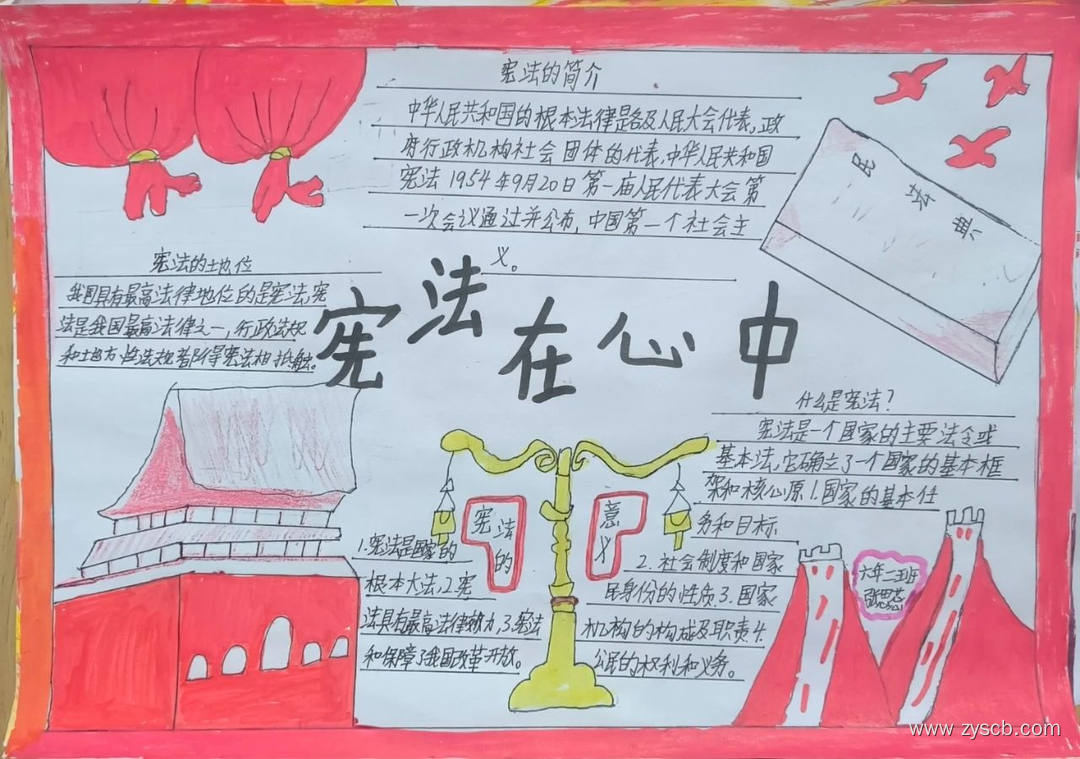 宪法的简介
中华人民共和国的根本法律是各及人民大会代表,政
府行政机构社会团体的代表,中华人民共和国
宪法1954年9月20日第一届人民代表大会第
一次会议通过并公布,中国第一个社会主
义。
民法典
宪法的地位
我国具有最高法律地位的是宪法,宪
法是我国最高法律之一,行政法规
和地方性法规若得宪法相抵触。
宪法在心中
什么是宪法?
宪法是一个国家的主要法令或
基本法,它确立了一个国家的基本框
架和核心原1.国家的基本任
务和目标
2.社会制度和国家
民身份的性质3.国家
机构的构成及职责4.
公民的权利和义务。
宪法的
意义
1.宪法是国家的
根本大法,2.宪
法具有最高法律效力,3.宪法
和保障了我国改革开放。
六年二班
www.zyscb.com